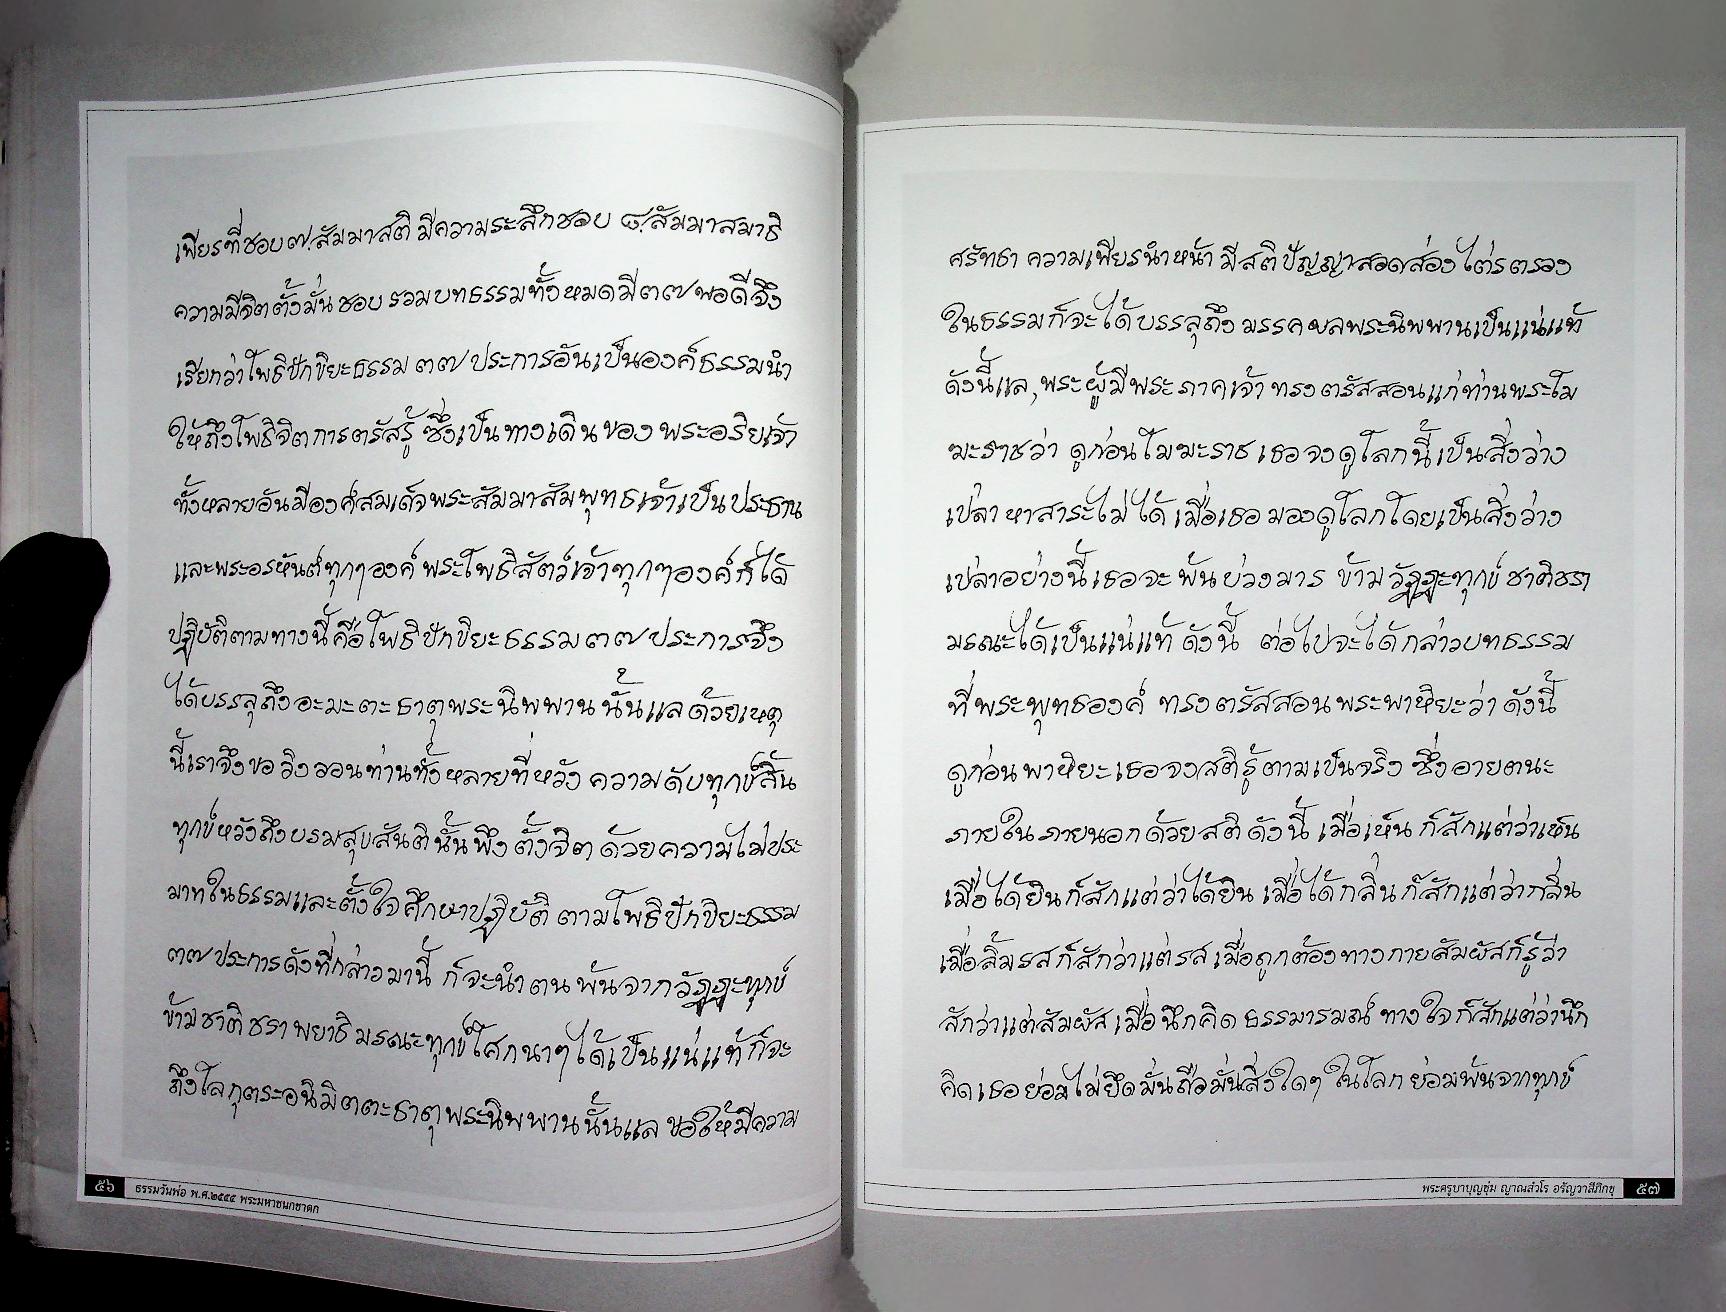 เพียรที่ชอบ ๗.สัมมาสติ มีความระลึกชอบ ๘.สัมมาสมาธิ
ความมีจิตตั้งมั่นชอบ รวมบทธรรมทั้งหมดมี ๓๗ พอดีจึง
เรียกว่าโพธิปักขิยะธรรม ๓๗ ประการอันเป็นองค์ธรรมนำ
ให้ถึงโพธิจิตการตรัสรู้ ซึ่งเป็นทางเดินของ พระอริยเจ้า
ทั้งหลายอันมีองค์สมเด็จพระสัมมาสัมพุทธเจ้าเป็นประธาน
และพระอรหันต์ทุกๆองค์ พระโพธิสัตว์เจ้าทุกๆองค์ก็ได้
ปฏิบัติตามทางนี้คือโพธิปักขิยะธรรม ๓๗ ประการจึง
ได้บรรลุถึงอะมะตะธาตุพระนิพพานนั้นแล ด้วยเหตุ
นี้เราจึงขอวิงวอนท่านทั้งหลายที่หวังความดับทุกข์สิ้น
ทุกข์หวังถึงบรมสุขสันตินั้น พึงตั้งจิตด้วยความไม่ประ
มาทในธรรมและตั้งใจศึกษาปฏิบัติ ตามโพธิปักขิยะธรรม
๓๗ ประการดังที่กล่าวมานี้ ก็จะนำตนพ้นจากวัฏฏะทุกข์
ข้ามชาติชราพยาธิมรณะทุกข์โศกนาๆได้เป็นแน่แท้ก็จะ
ถึงโลกุตระอนิมิตตะธาตุพระนิพพานนั้นแล ขอให้มีความ
๕๖ ธรรมวันพ่อ พ.ศ.๒๕๕๔ พระมหาชนกชาดก
ศรัทธา ความเพียรนำหน้า มีสติปัญญาสอดส่องไต่รตรอง
ในธรรมก็จะได้บรรลุถึงมรรคผลพระนิพพานเป็นแน่แท้
ดังนี้แล, พระผู้มีพระภาคเจ้าทรงตรัสสอนแก่ท่านพระโม
ฆะราชว่า ดูก่อนโมฆะราช เธอจงดูโลกนี้เป็นสิ่งว่าง
เปล่าหาสาระไม่ได้ เมื่อเธอมองดูโลกโดยเป็นสิ่งว่าง
เปล่าอย่างนี้ เธอจะพ้นบ่วงมาร ข้ามวัฏฏะทุกข์ชาติชรา
มรณะได้เป็นแน่แท้ดังนี้ ต่อไปจะได้กล่าวบทธรรม
ที่พระพุทธองค์ ทรงตรัสสอนพระพาหิยะว่าดังนี้
ดูก่อนพาหิยะเธอจงสติรู้ตามเป็นจริง ซึ่งอายตนะ
ภายในภายนอกด้วยสติดังนี้ เมื่อเห็นก็สักแต่ว่าเห็น
เมื่อได้ยินก็สักแต่ว่าได้ยิน เมื่อได้กลิ่นก็สักแต่ว่ากลิ่น
เมื่อลิ้มรสก็สักว่าแต่รส เมื่อถูกต้องทางกายสัมผัสก็รู้ว่า
สักว่าแต่สัมผัส เมื่อนึกคิดธรรมารมณ์ทางใจก็สักแต่ว่านึก
คิดเธอย่อมไม่ยึดมั่นถือมั่นสิ่งใดๆในโลกย่อมพ้นจากทุกข์
พระครูบาบุญชุ่ม ญาณสํวโร อรัญวาสีภิกขุ ๕๗